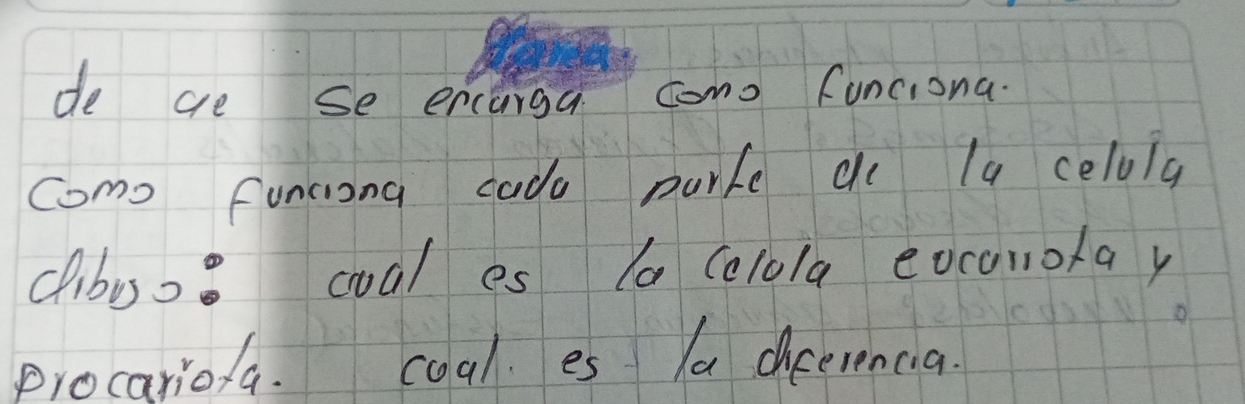 Tama
de qe se encarga como funciona.
como funciona cada parte de la celula
dibujo: cual es la celula eucariota y
procariota. cual. es la diferencia.